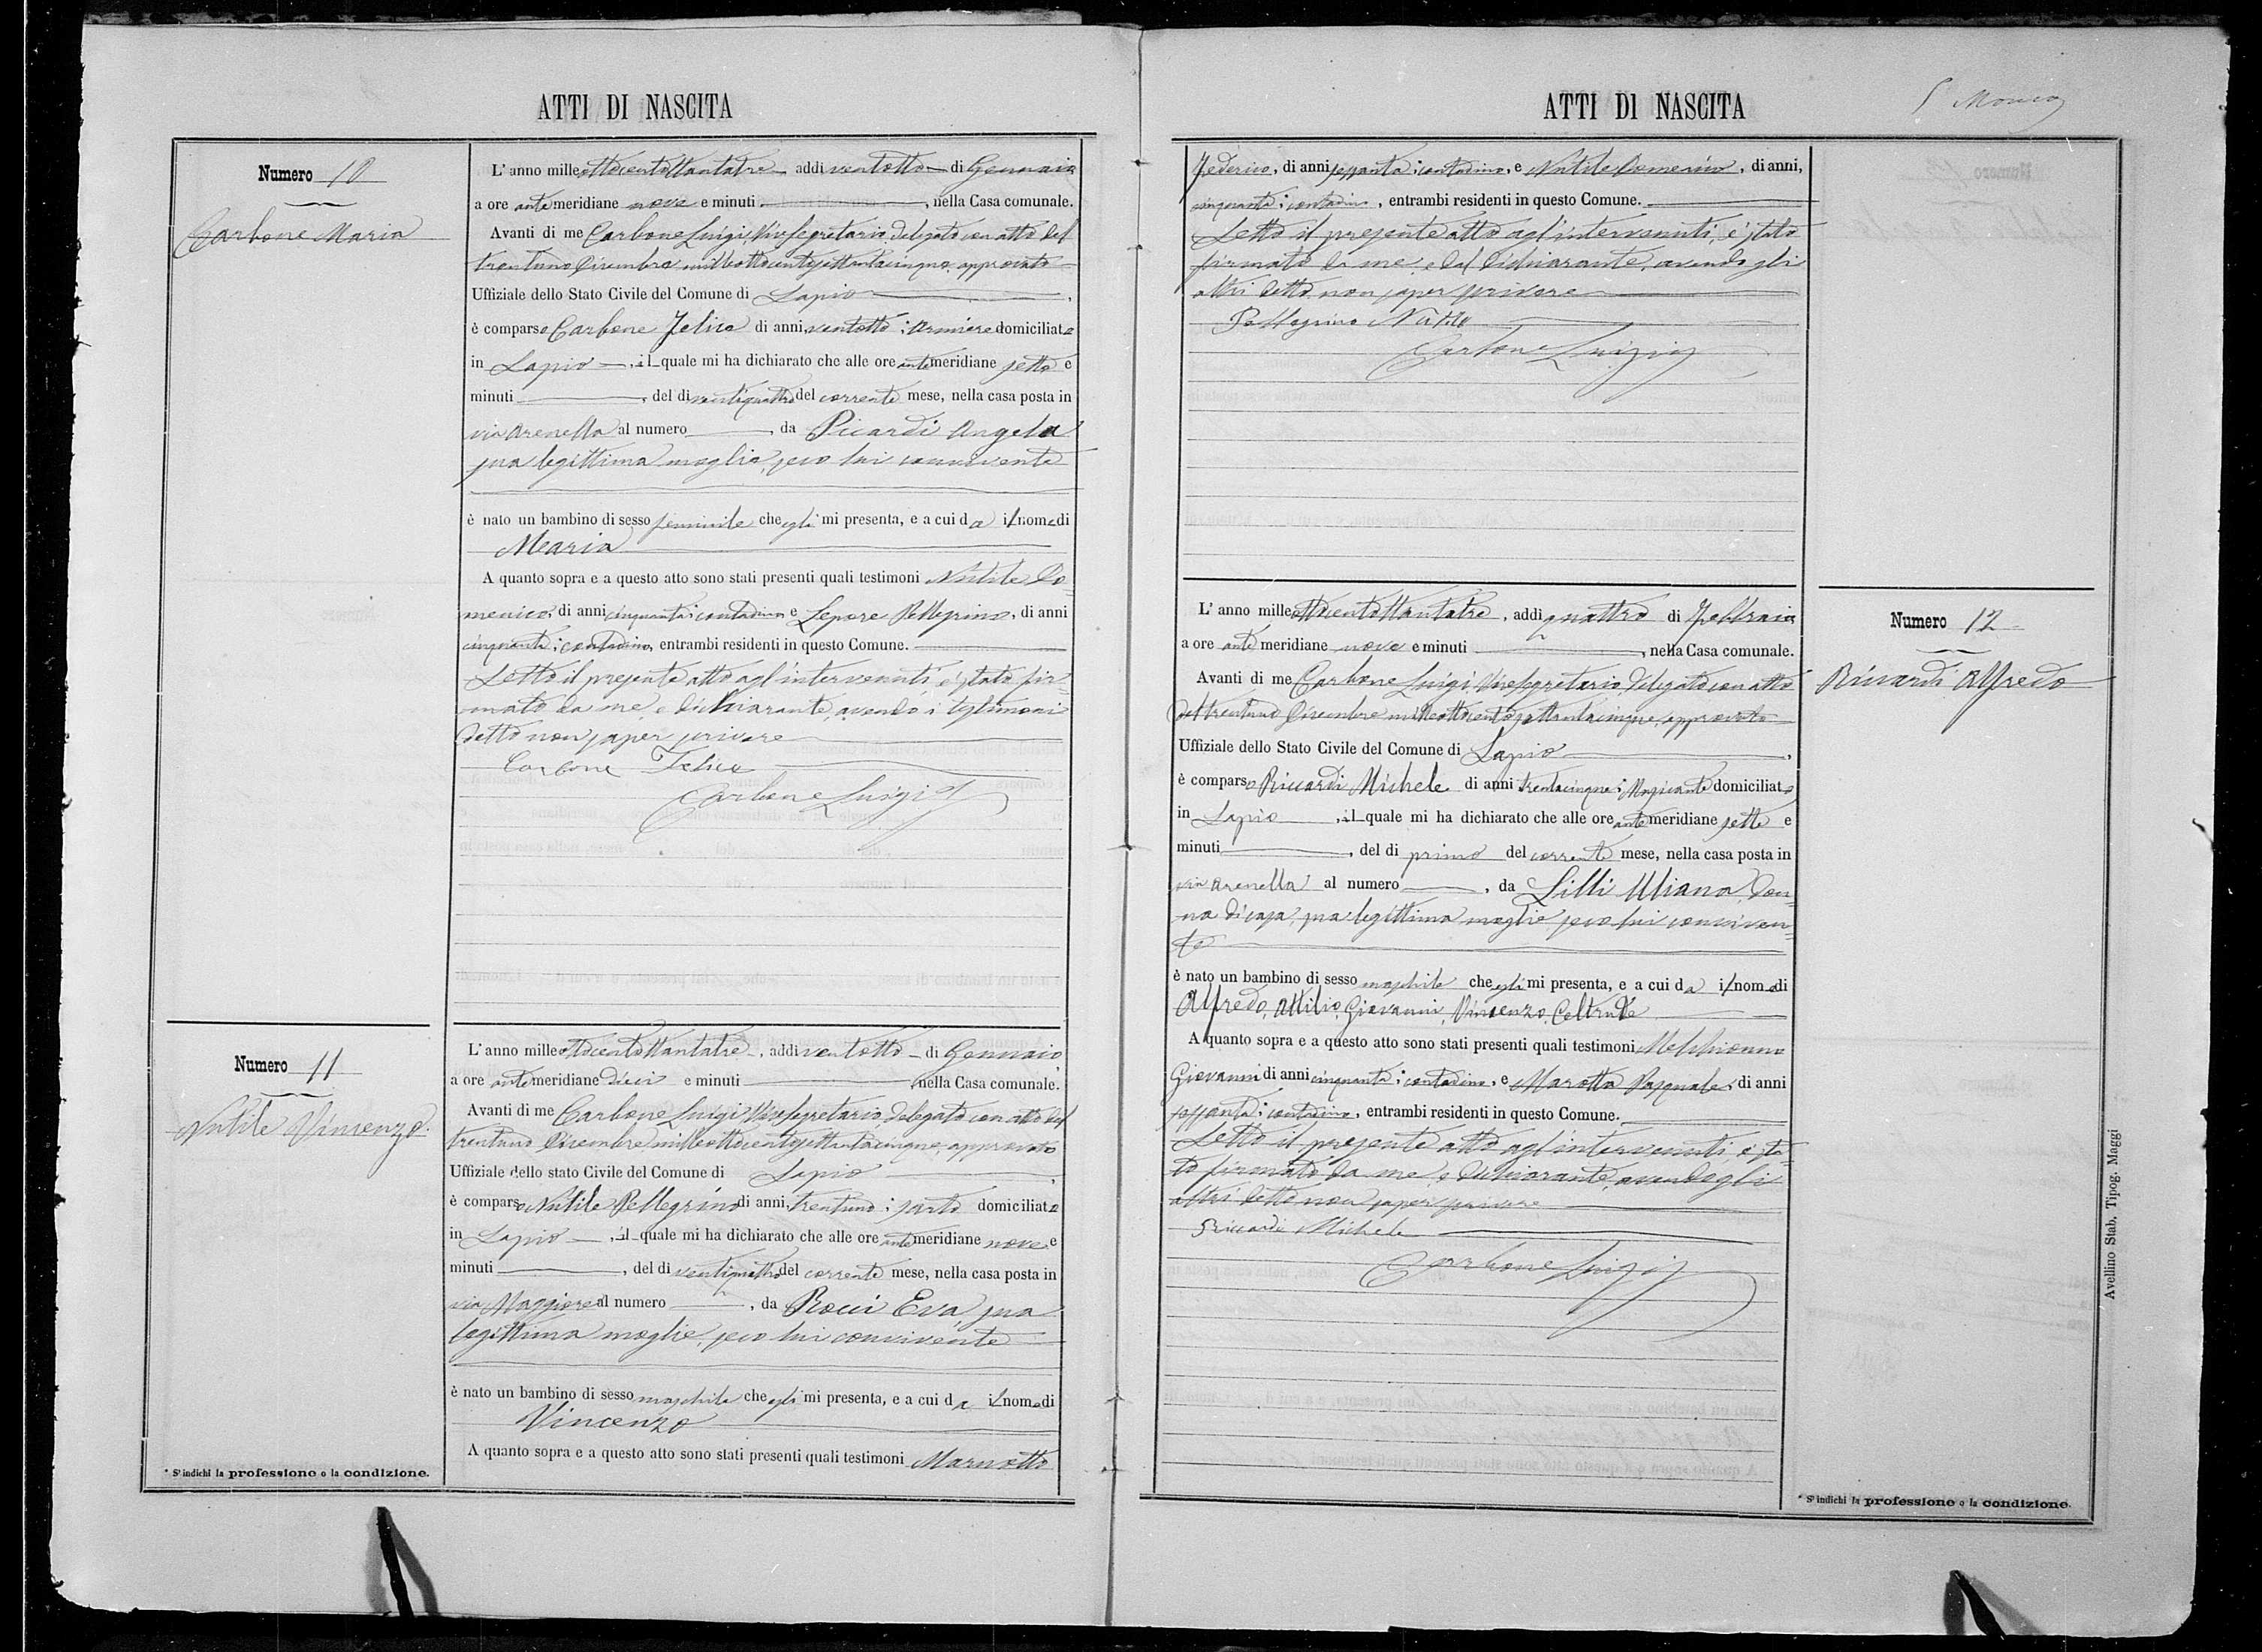 ATTI DI NASCITA
Numero 10
Carbone Maria
L'anno milleottocentottantatre addi ventotto di Gennaio
a ore antemeridiane nove e minuti , nella Casa comunale.
Avanti di me Carbone Luigi, Vice Segretario, delegato con atto del
trentuno Dicembre milleottocentosettantacinque, approvato
Uffiziale dello Stato Civile del Comune di Lapio ,
è comparso Carbone Felice di anni, ventotto; domiciliato
in Lapio , il quale mi ha dichiarato che alle ore antemeridiane sette e
minuti , del di ventiquattro del corrente mese, nella casa posta in
via Arenella al numero , da Picardi Angela
sua legittima moglie, seco lui convivente
è nato un bambino di sesso femminile che egli mi presenta, e a cui da il nome di
Maria
A quanto sopra e a questo atto sono stati presenti quali testimoni Nutile Do=
menico, di anni cinquanta; contadino e Lepore Pellegrino, di anni
cinquanta; contadino, entrambi residenti in questo Comune.
Letto il presente atto agl'intervenuti, è stato fir=
mato da me, e dichiarante, avendo i testimoni
detto non saper scrivere
Carbone Felice
Carbone Luigi
Numero 11
Nutile Vincenzo.
L'anno milleottocentottantatre , addi ventotto di Gennaio,
a ore antemeridiane dieci e minuti , nella Casa comunale.
Avanti di me Carbone Luigi Vice Segretario, delegato con atto del
trentuno Dicembre milleottocentosettantacinque, approvato
Uffiziale dello stato Civile del Comune di Lapio ,
è comparso Nutile Pellegrino di anni, trentuno; sarto domiciliato
in Lapio , il quale mi ha dichiarato che alle ore antemeridiane nove e
minuti , del di ventiquattro del corrente mese, nella casa posta in
via Maggiore al numero , da Rocci Eva, sua
legittima moglie, seco lui convivente
è nato un bambino di sesso maschile che egli mi presenta, e a cui da il nome di
Vincenzo
A quanto sopra e a questo atto sono stati presenti quali testimoni
* S'indichi la professione o la condizione.
ATTI DI NASCITA
Federico, di anni sessanta; contadino, e Nutile Domenico, di anni,
cinquanta; contadino, entrambi residenti in questo Comune.
Letto il presente atto agl'intervenuti, è stato
firmato da me, e dal dichiarante, avendo gli
altri detto non saper scrivere
Pellegrino Nutile
Carbone Luigi
Numero 12
Riccardi Alfredo
L'anno milleottocentottantatre, addi quattro di Febbraio
a ore antemeridiane nove e minuti , nella Casa comunale.
Avanti di me Carbone Luigi, Vice Segretario, delegato con atto
del trentuno Dicembre milleottocentosettantacinque, approvato
Uffiziale dello Stato Civile del Comune di Lapio ,
è comparso Riccardi Michele di anni trentacinque; domiciliato
in Lapio , il quale mi ha dichiarato che alle ore antemeridiane sette e
minuti , del di primo del corrente mese, nella casa posta in
via Arenella al numero , da Lilli Uliana, don=
na di casa, sua legittima moglie seco lui conviven=
te
è nato un bambino di sesso maschile che egli mi presenta, e a cui da il nome di
Alfredo, Attilio, Giovanni, Vincenzo, Geltrude
A quanto sopra e a questo atto sono stati presenti quali testimoni Melchionno
Giovanni di anni cinquanta; contadino, e Marotta Pasquale; di anni
sessanta; contadino, entrambi residenti in questo Comune.
Letto il presente atto agl'intervenuti è sta=
to firmato da me, e dichiarante, avendo gli
altri detto non saper scrivere
Riccardi Michele
Carbone Luigi
* S'indichi la professione o la condizione.
Avellino Stab. Tipog. Maggi